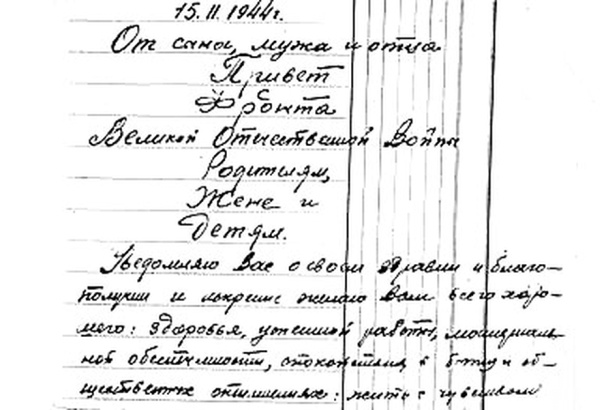 15.II.1944г.
От сына, мужа и отца
Привет
Фронта
Великой Отечественной Войны
Родителям,
Жене и
Детям.
Уведомляю Вас о своем здравии и благо-
получии и искренне желаю Вам всего хоро-
шего: здоровья, успешной работы, материаль-
ной обеспеченности, спокойствия в быту и об-
щественных отношениях: жить с чувством